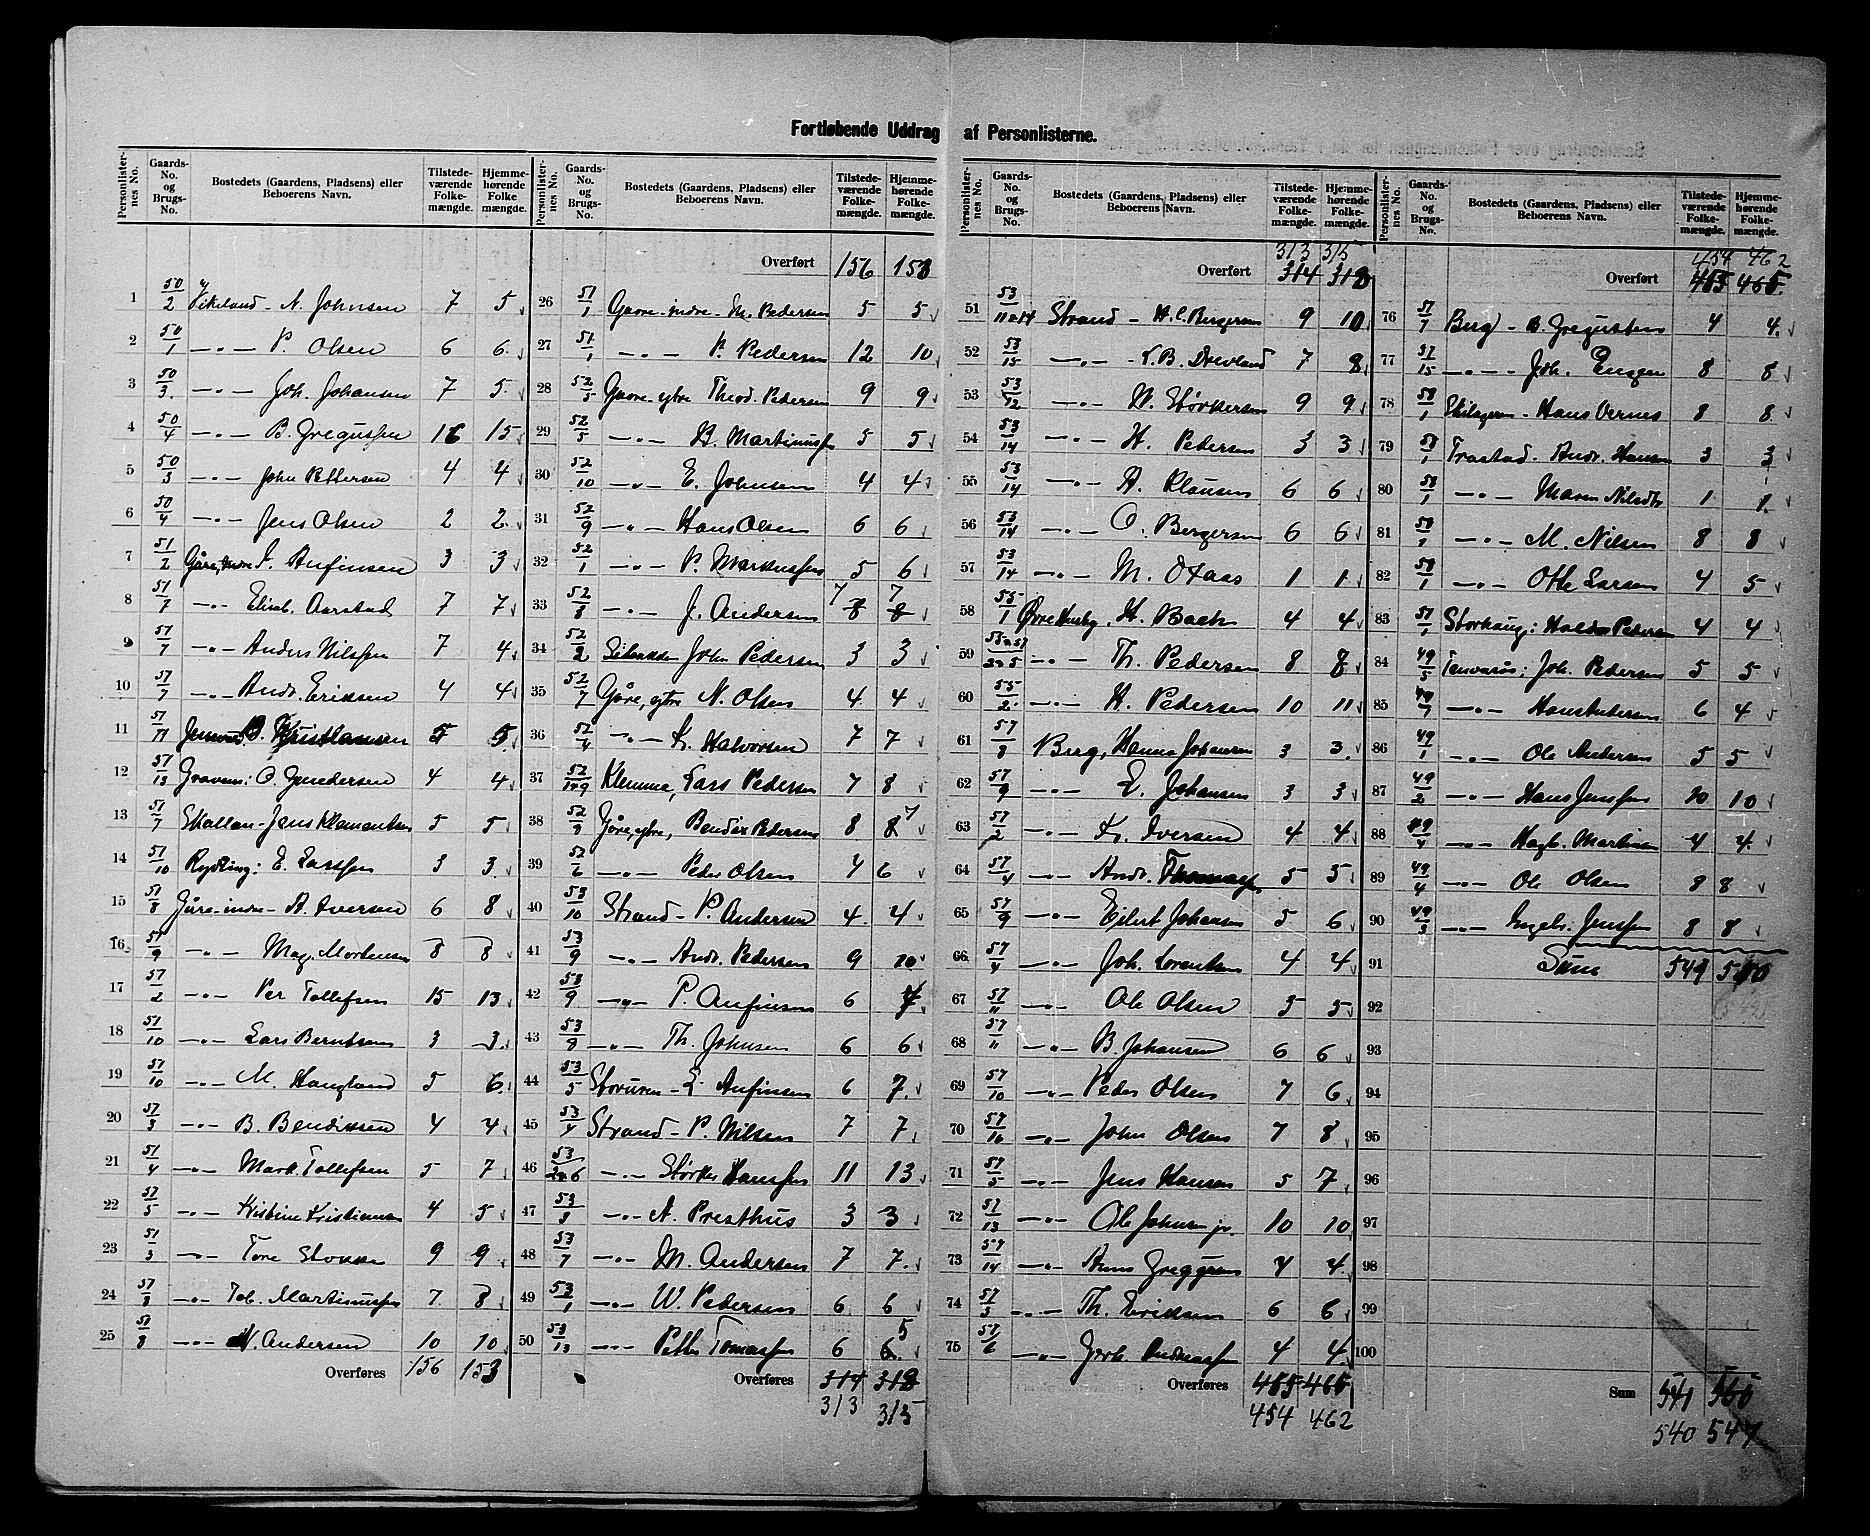 Fortløbende Uddrag af Personlisterne.
Personlister-nes No. | Gaards-No. og Brugs-No. | Bostedets (Gaardens, Pladsens) eller Beboerens Navn. | Tilstede-værende Folke-mængde. | Hjemme-hørende Folke-mængde.
1 50/2 Vikeland - N. Johnsen 7 5
2 50/1 —„— P. Olsen 6 6
3 50/3 —„— Joh. Johansen 7 5
4 50/4 —„— B. Gregussen 16 15
5 50/3 —„— John Pettersen 4 4
6 50/4 —„— Jens Olsen 2 2
7 51/2 Gåre, indre Anfinsen 3 3
8 51/7 —„— Elisab. Aarstad 7 7
9 51/7 —„— Anders Nilssen 7 4
10 51/7 —„— Andr. Eriksen 4 4
11 51/11 B. Kristiansen 5 5
12 51/13 Graven: O. Gundersen 4 4
13 51/7 Skallan - Jens Klementsen 5 5
14 51/10 Rydning: E. Larssen 3 3
15 51/8 Gåre-indre - A. Iversen 6 8
16 51/9 —„— Mag. Mortensen 8 8
17 51/2 —„— Per Tollefsen 15 13
18 51/10 —„— Lars Berntsen 3 3
19 51/10 —„— M. Haugland 5 6
20 51/3 —„— B. Bendiksen 4 4
21 51/4 —„— Mark. Tollefsen 5 7
22 51/5 —„— Kristine Kristiansen 4 5
23 51/3 —„— Tore Stokke 9 9
24 51/8 —„— Tob. Martinussen 7 8
25 51/8 —„— N. Andersen 10 10
Overføres 156 153
Overført 156 153
26 51/1 Gaare-indre - M. Pedersen 5 5
27 51/1 —„— P. Pedersen 12 10
28 52/5 Gaare-ytre Theod. Pedersen 9 9
29 52/5 —„— B. Martinussen 5 5
30 52/10 —„— E. Johnsen 4 4
31 52/9 —„— Hans Olsen 6 6
32 52/1 —„— P. Markussen 5 6
33 52/8 —„— J. Andersen 7 7
34 52/2 John Pedersen 3 3
35 52/7 Gåre, ytre N. Olsen 4 4
36 52/4 —„— K. Halvorsen 7 7
37 52/ Klemma, Lars Pedersen 7 8
38 52/3 Gåre, ytre, Bendix Pedersen 8 8 7
39 52/6 —„— Peder Olsen 4 6
40 53/10 Strand - P. Andersen 4 4
41 53/9 —„— Andr. Pedersen 9 10
42 53/9 —„— P. Anfinsen 6
43 53/8 —„— Th. Johnsen 6 6
44 53/5 Storuren - E. Anfinsen 6 7
45 53/4 Strand - P. Nilsen 7 7
46 53/2 a 6 —„— Størker Hanssen 11 13
47 53/3 —„— A. Presthus 3 3
48 53/7 —„— M. Andersen 7 7
49 53/1 —„— W. Pedersen 6 6
50 53/13 —„— Petter Tomassen 6 6 5
Overføres 314 318
313 315
313 315
Overført 314 318
51 53/11 a 14 Strand - H. C. Bergersen 9 10
52 53/15 —„— B. Drevland 7 8
53 53/12 —„— W. Størkersen 9 9
54 53/14 —„— H. Pedersen 3 3
55 53/14 —„— A. Klausen 6 6
56 53/14 —„— O. Bergersen 6 6
57 53/14 —„— M. Oxaas 1 1
58 55/1 Øvre Husby, H. Bach 4 4
59 —„— Th. Pedersen 8 8
60 55/2 —„— H. Pedersen 10 11
61 57/8 Berg, Hanna Johansen 3 3
62 57/9 —„— E. Johansen 3 3
63 57/2 —„— K. Iversen 4 4
64 57/4 —„— Andr. Thomassen 5 5
65 57/9 —„— Eilert Johansen 5 6
66 57/4 —„— Joh. Lorentsen 4 4
67 57/11 —„— Ole Olsen 5 5
68 57/11 —„— B. Johansen 6 6
69 57/10 —„— Peder Olsen 7 6
70 57/16 —„— John Olsen 7 8
71 57/5 —„— Jens Hansen 5 7
72 57/13 —„— Ole Johnsen jr. 10 10
73 57/14 —„— Anna Greggersen 4 4
74 57/3 —„— Th. Eriksen 6 6
75 57/6 —„— Gerh. Andreassen 4 4
Overføres 455 465
454 462
454 462
Overført 455 465
76 57/7 Berg - B. Gregussen 4 4
77 57/15 —„— Joh. Ensgen 8 8
78 58/1 Skilageren - Hans Vernes 8 8
79 58/1 Trastad. Andr. Hansen 3 3
80 58/1 —„— Maren Nilsdtr 1 1
81 58/1 —„— M. Nilsen 8 8
82 58/1 —„— Otte Larsen 4 5
83 57/1 Storhaug: Haldor Pedersen 4 4
84 49/5 Joh. Pedersen 5 5
85 49/7 —„— Hans Andersen 6 4
86 49/1 —„— Ole Andersen 5 5
87 49/2 —„— Hans Jenssen 10 10
88 49/4 —„— Hagb. Martinsen 4 4
89 49/4 —„— Ole Olsen 8 8
90 49/3 —„— Engelr. Jenssen 8 8
91 Sum 541 550
92
93
94
95
96
97
98
99
100
Sum 541 550
540 547